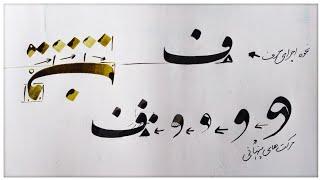 نحوه اجرای حرف ف
و و و و ف
حرکت های پنهانی